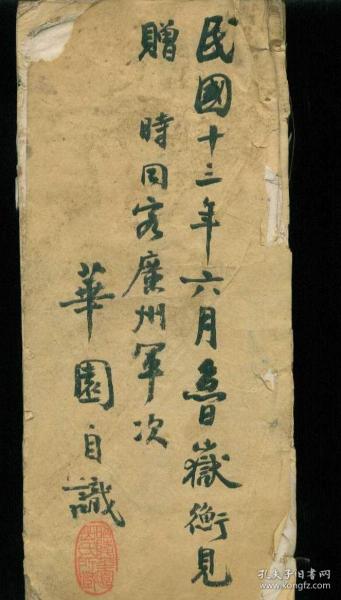 民國十三年六月魯嶽衡見
贈 時同客廣州軍次
華園自識
孔夫子旧书网
www.kongfz.com